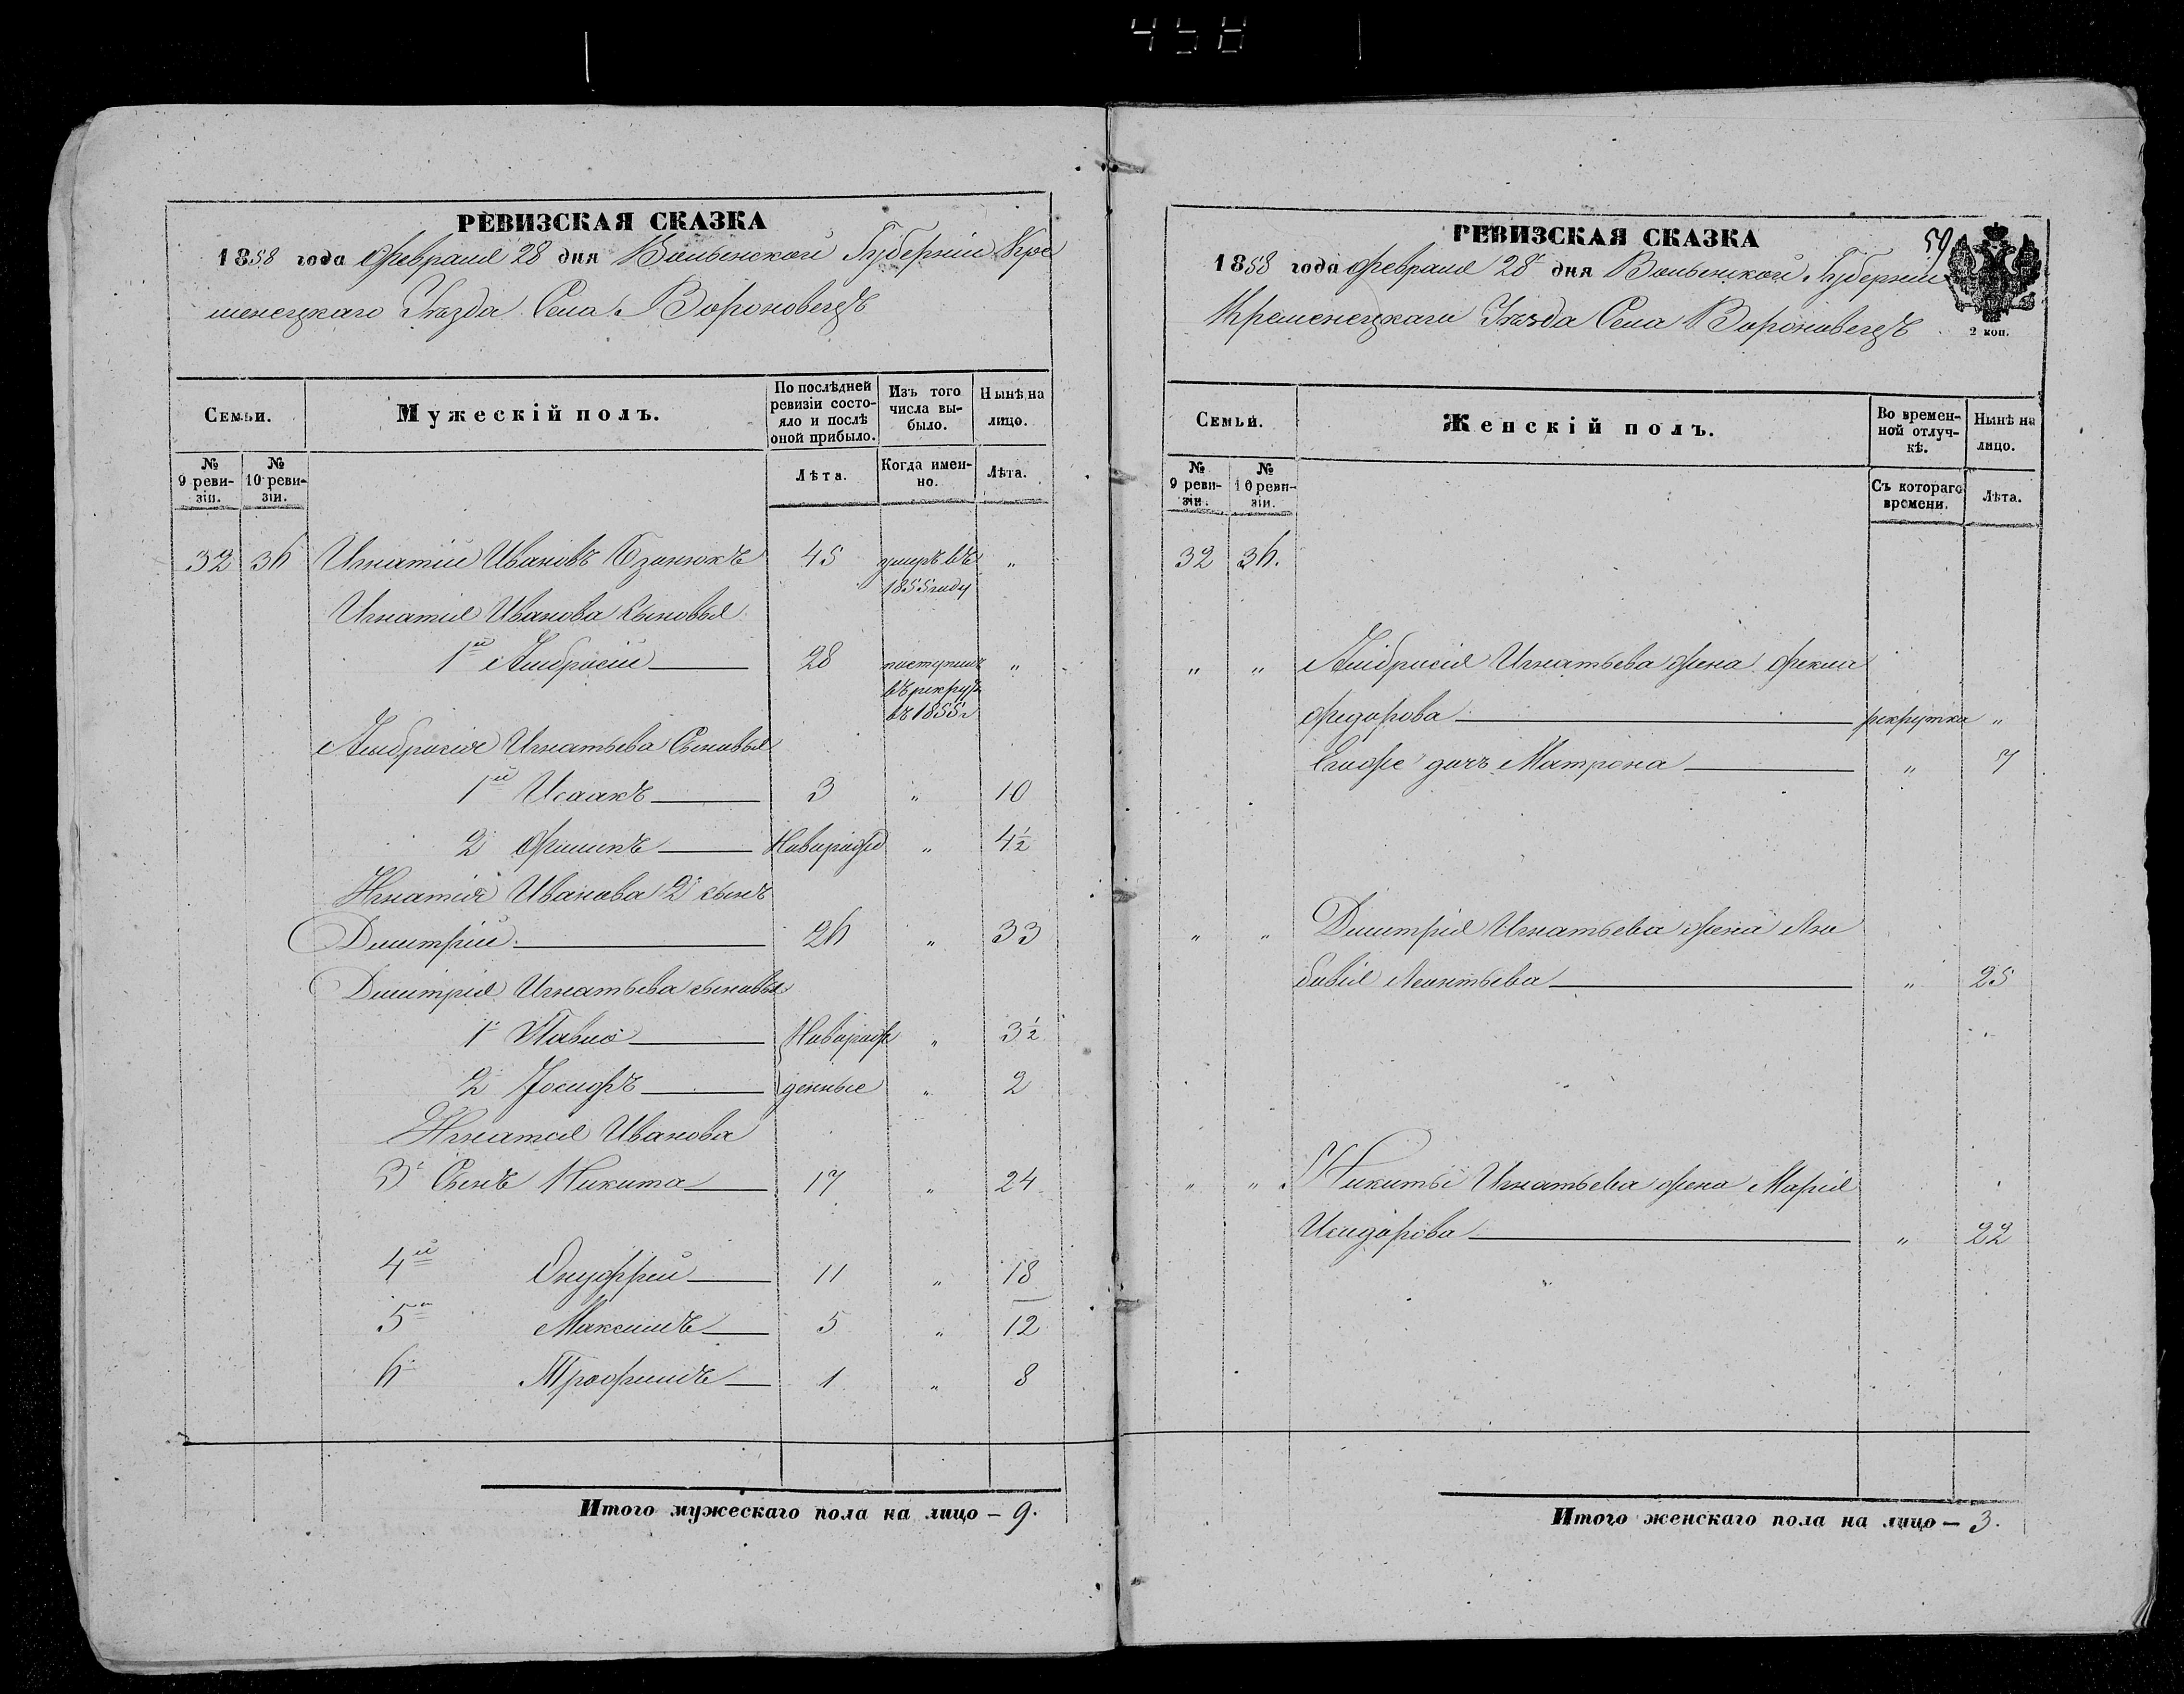 458
РЕВИЗСКАЯ СКАЗКА
1858 года Февраля 28 дня Волынской Губерніи Кре
менецкаго Уѣзда Села Вороновецъ
Семьи.
Мужескій полъ.
По послѣдней ревизіи состояло и послѣ оной прибыло.
Изъ того числа выбыло.
Нынѣ на лицо.
№ 9 ревизіи.
№ 10 ревизіи.
Лѣта.
Когда именно.
Лѣта.
32 36 Игнатій Ивановъ Бзанюкъ 45 умеръ въ "
1855 году
Игнатія Иванова Сыновья
1й Амбросій 28 поступилъ "
въ рекруты
въ 1855 г
Амбросія Игнатьева Сыновья
1й Исаакъ 3 " 10
2 Филипъ Новорожд " 4 1/2
Игнатія Иванова 2й сынъ
Димитрій 26 " 33
Димитрія Игнатьева сыновья
1й Павло Новорож " 3 1/2
2й Іосифъ денные " 2
Игнатія Иванова
3й Сынъ Никита 17 " 24
4й Онуфрей 11 " 18
5й Максимъ 5 " 12
6й Трофимъ 1 " 8
Итого мужескаго пола на лицо — 9.
59
РЕВИЗСКАЯ СКАЗКА
1858 года Февраля 28 дня Волынской Губерніи
Кременецкаго Уѣзда Села Вороновецъ
2 коп.
Семьи.
Женскій полъ.
Во временной отлучкѣ.
Нынѣ на лицо.
№ 9 ревизіи.
№ 10 ревизіи.
Съ котораго времени.
Лѣта.
32 36.
" " Амбросія Игнатьева жена Фекла
Федорова рекрутка "
Егоже дочь Матрона " 7
" " Димитрія Игнатьева жена Лю
бовія Леонтьева " 25
" " Никиты Игнатьева жена Марія
Исидорова " 22
Итого женскаго пола на лицо — 3.